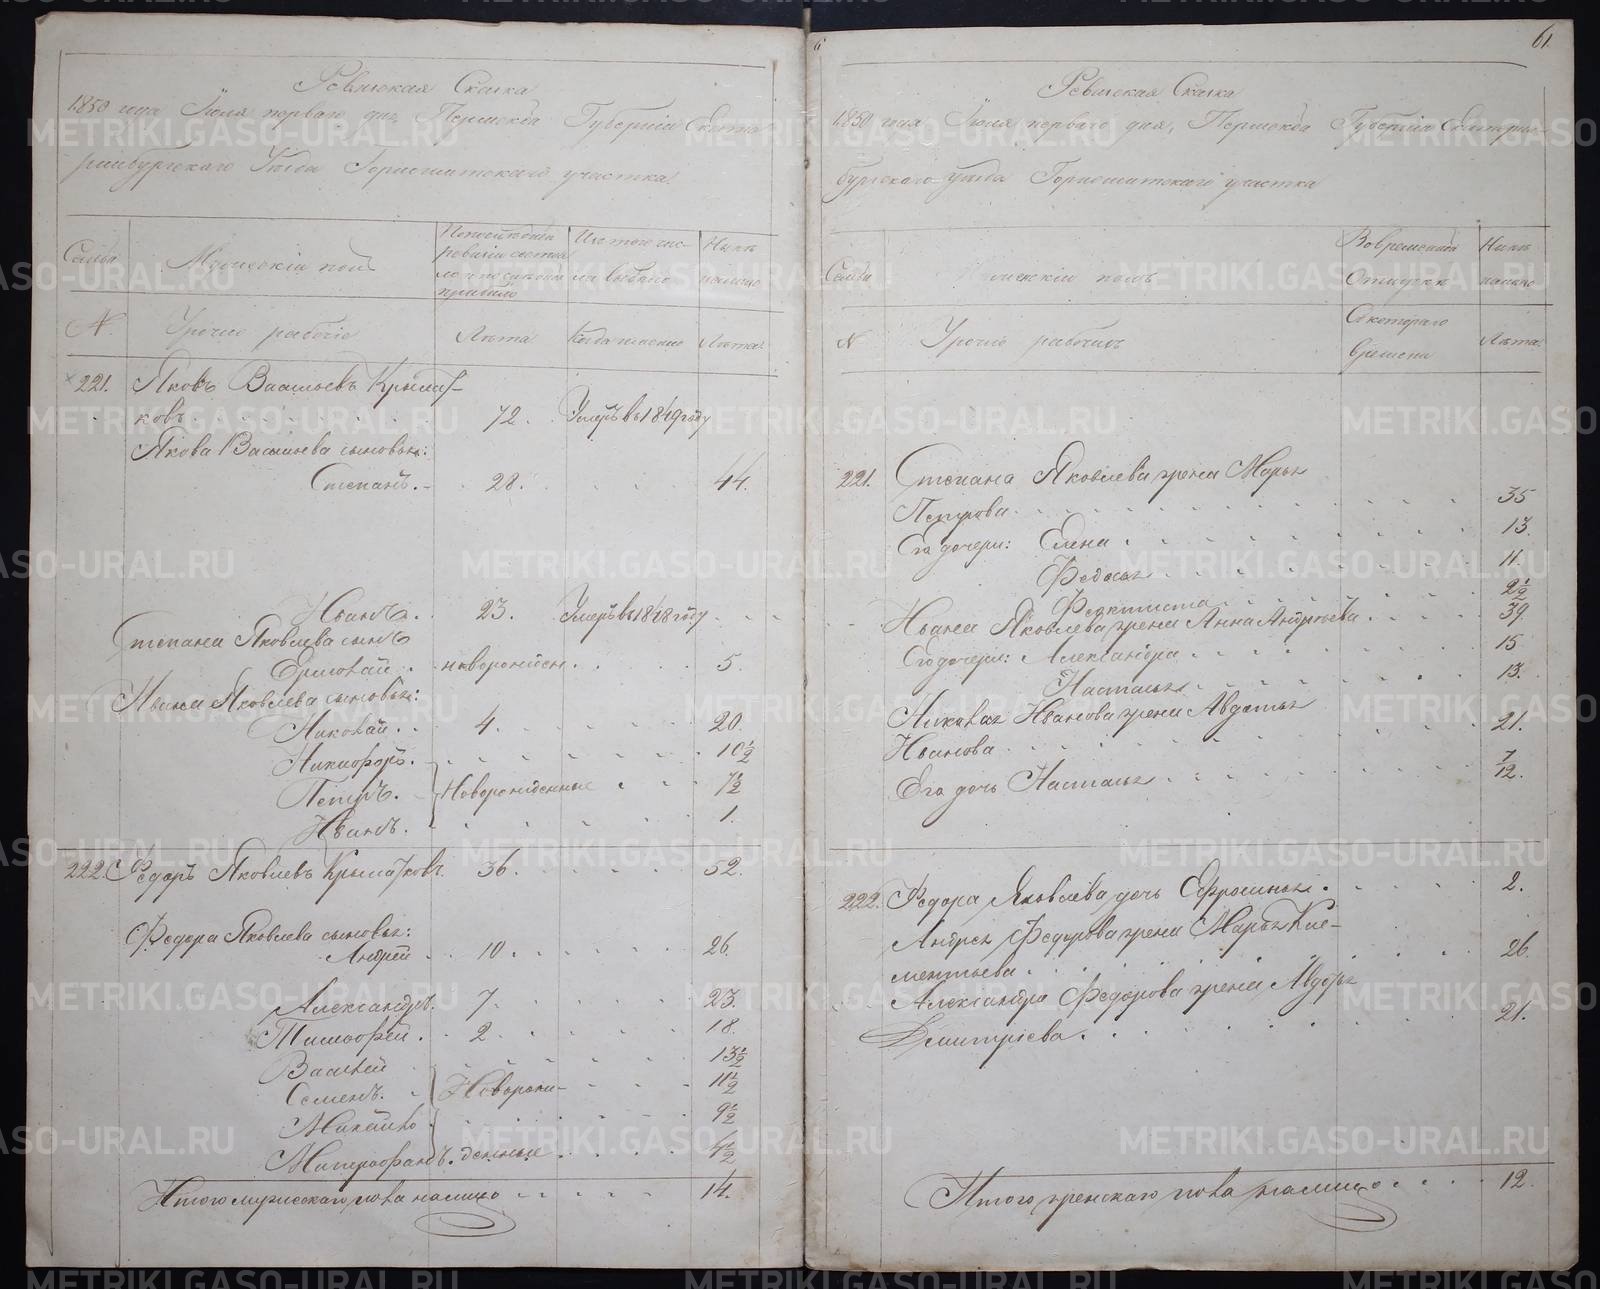 Ревижская Сказка
1850 года Июля перваго дня, Пермской Губернiи Екате-
ринбургскаго Уѣзда Горнощитскаго участка.
Семьи
Мужескiй полъ
По последней
ревизiи состоя-
ло и после ой
прибыло
Изъ того чис-
ла выбыло
Нынѣ
налицо
№.
Урочно рабочiе
Лѣта
Когда именно
Лѣта.
221. Яковъ Васильевъ Крымат-
ковъ 72. Умеръ въ 1849 году
Якова Васильева сыновья:
Степанъ. 28. 44.
Иванъ. 23. Умеръ въ 1848 году
Степана Яковлева сынъ
Ермолай. новорожден. 5.
Ивана Яковлева сыновья:
Николай. 4. 20.
Никифоръ. 10½
Петръ. Новорожденные 7½
Иванъ. 1.
222. Федоръ Яковлевъ Крыматковъ 36. 52.
Федора Яковлева сыновья:
Андрей 10. 26.
Александръ. 7. 23.
Тимофей. 2. 18.
Василiй 13½
Семенъ. Новорож- 11½
Михайло 9½
Митрофанъ. денные 4½
Итого мужескаго пола налицо 14.
61.
Ревижская Сказка
1850 года Июля перваго дня, Пермской Губернiи Екатерин-
бургскаго уѣзда Горнощитскаго участка
Семьи
Женскiй полъ
Во временной
Отлучкѣ
Нынѣ
налицо
№
Урочно рабочихъ
Съ котораго
времени
Лѣта.
221. Степана Яковлева жена Марья
Петрова. 35
Его дочери: Елена 13.
Федосья 11.
Феоктиста 2½
Ивана Яковлева жена Анна Андреева 39.
Его дочери: Александра 15
Настасья 13.
Николая Иванова жена Авдотья
Иванова 21.
Его дочь Настасья 7/12.
222. Федора Яковлева дочь Ефросинья. 2.
Андрея Федорова жена Марья Кле-
ментьева. 26.
Александра Федорова жена Авдотья
Дмитрiева. 21.
Итого женскаго пола налицо 12.
METRIKI.GASO-URAL.RU